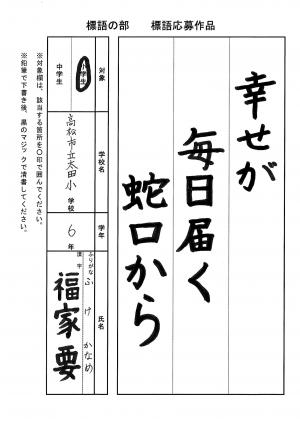 標語の部　標語応募作品
幸せが
毎日届く
蛇口から
対象
小学生
中学生
学校名
高松市立太田小
学校
学年
6年
氏名
ふりがな
ふけ かなめ
漢字
福家要
※対象欄は、該当する箇所を○印で囲んでください。
※鉛筆で下書き後、黒のマジックで清書してください。